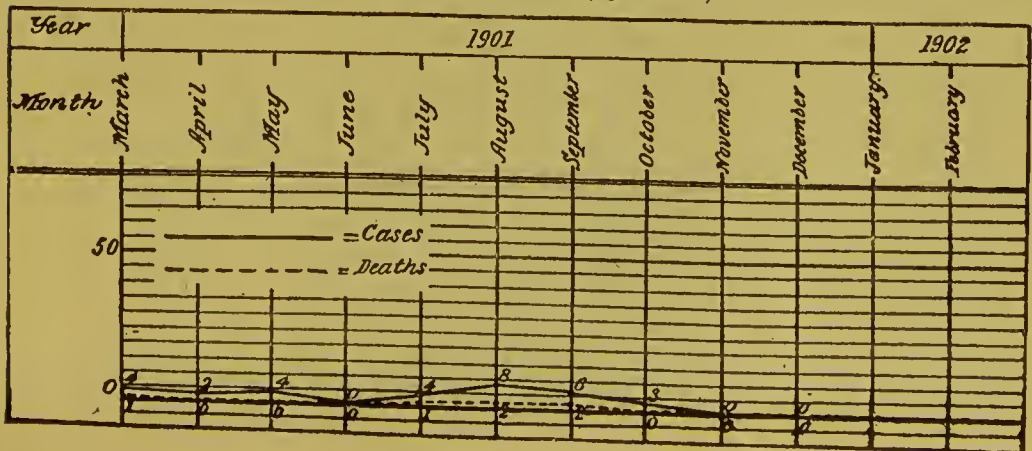 Year 1901 1902
Month March April May June July August September October November December January February
50
= Cases
= Deaths
0
4 2 4 0 4 8 6 3 0 0
1 0 0 0 1 0 0 0